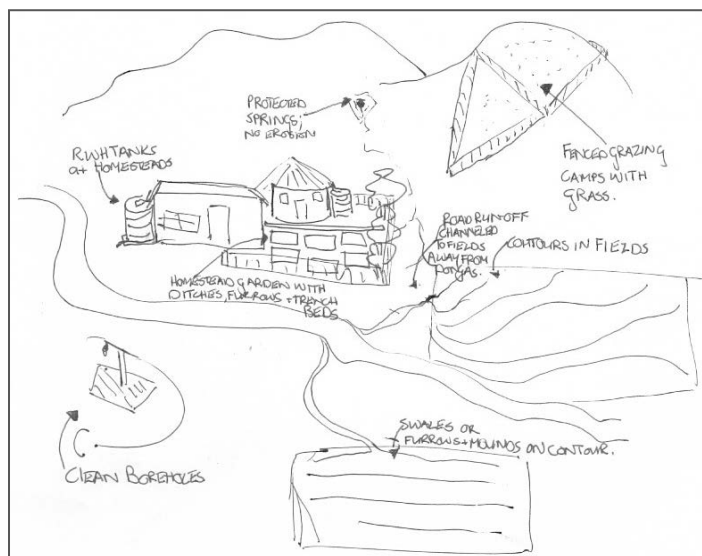 PROTECTED
SPRINGS;
NO EROSION
RWH TANKS
at HOMESTEADS
FENCED GRAZING
CAMPS WITH
GRASS.
ROAD RUNOFF
CHANNELED
TO FIELDS
AWAY FROM
DONGAS.
CONTOURS IN FIELDS
HOMESTEAD GARDEN WITH
DITCHES, FURROWS + TRENCH
BEDS
SWALES OR
FURROWS + MOUNDS ON CONTOUR.
CLEAN BOREHOLES